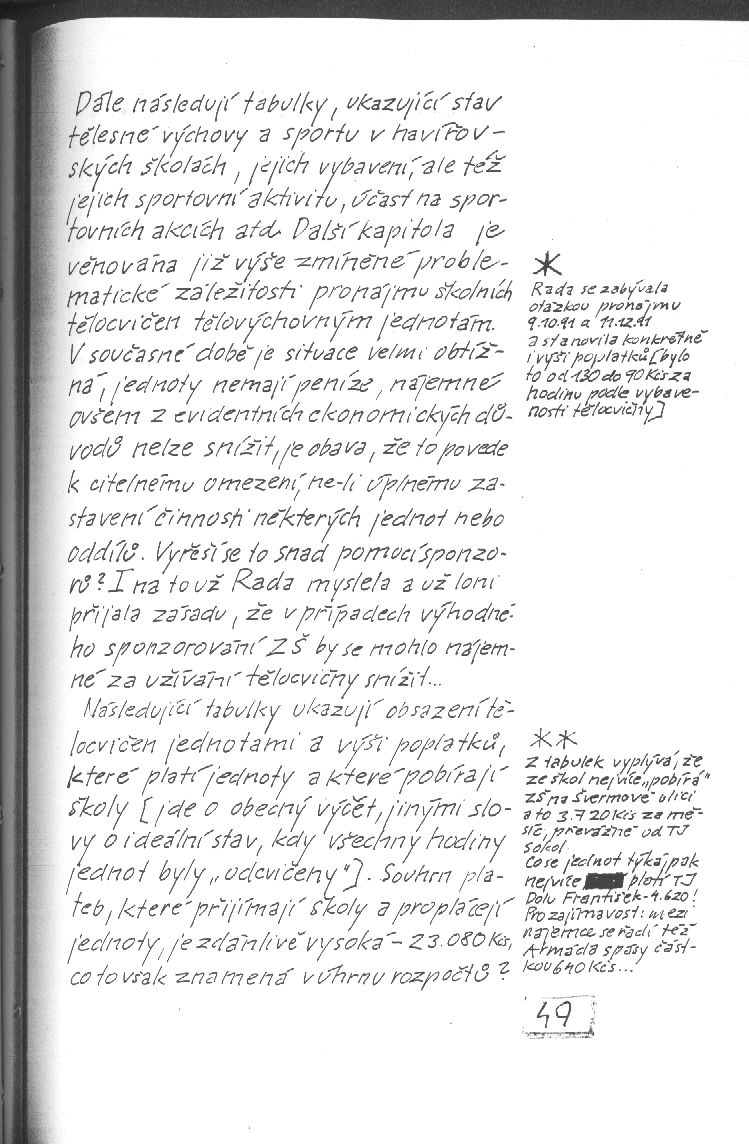 Dále následují tabulky, ukazující stav
tělesné výchovy a sportu v havířov-
ských školách, jejich vybavení, ale též
jejich sportovní aktivitu, účast na spor-
tovních akcích atd. Další kapitola je
věnována již výše zmíněné proble-
matické záležitosti pronájmu školních
tělocvičen tělovýchovným jednotám.
V současné době je situace velmi obtíž-
ná, jednoty nemají peníze, nájemné
ovšem z evidentních ekonomických dů-
vodů nelze snížit, je obava, že to povede
k citelnému omezení, ne-li úplnému za-
stavení činnosti některých jednot nebo
oddílů. Vyřeší se to snad pomocí sponzo-
rů? I na to už Rada myslela a už loni
přijala zásadu, že v případech výhodné-
ho sponzorování ZŠ by se mohlo nájem-
né za užívání tělocvičny snížit...
Následující tabulky ukazují obsazení tě-
locvičen jednotami a výši poplatků,
které platí jednoty a které pobírají
školy [jde o obecný výčet, jinými slo-
vy o ideální stav, kdy všechny hodiny
jednot byly „odcvičeny"]. Souhrn pla-
teb, které přijímají školy a proplácejí
jednoty, je zdánlivě vysoká - 23.080 Kčs,
co to však znamená v úhrnu rozpočtů?
*
Rada se zabývala
otázkou pronájmu
9.10.91 a 11.12.91
a stanovila konkrétně
i výši poplatků [bylo
to od 130 do 90 Kčs za
hodinu podle vybave-
nosti tělocvičny]
**
Z tabulek vyplývá, že
ze škol nejvíce „pobírá"
ZŠ na Švermově ulici
a to 3.720 Kčs za mě-
síc, převážně od TJ
Sokol.
Co se jednot týká, pak
nejvíce platí TJ
Dolu František - 4.620!
Pro zajímavost: mezi
nájemce se řadí též
Armáda spásy část-
kou 640 Kčs...
49